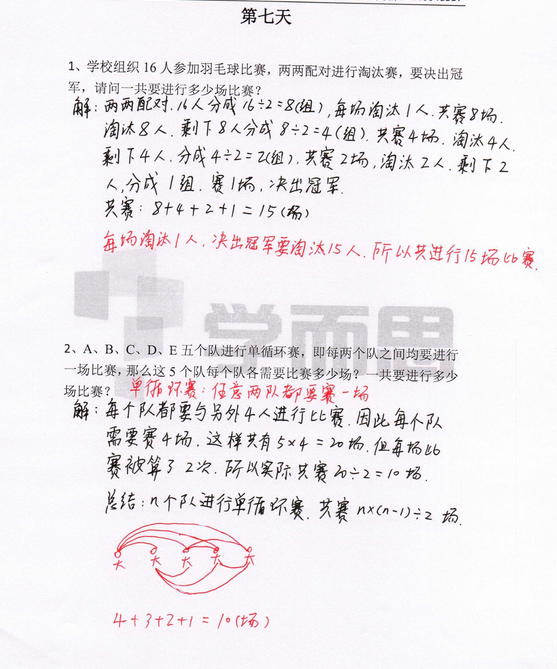 第七天
1、学校组织 16 人参加羽毛球比赛，两两配对进行淘汰赛，要决出冠
军，请问一共要进行多少场比赛？
解：两两配对.16人分成16÷2=8(组),每场淘汰1人.共赛8场.
淘汰8人.剩下8人分成8÷2=4(组).共赛4场.淘汰4人.
剩下4人.分成4÷2=2(组).共赛2场,淘汰2人.剩下2
人,分成1组.赛1场,决出冠军.
共赛：8+4+2+1=15(场)
每场淘汰1人.决出冠军要淘汰15人.所以共进行15场比赛.
学而思
2、A、B、C、D、E 五个队进行单循环赛，即每两个队之间均要进行
一场比赛，那么这 5 个队每个队各需要比赛多少场？ 一共要进行多少
场比赛？ 单循环赛：任意两队都要赛一场
解：每个队都要与另外4人进行比赛.因此每个队
需要赛4场.这样共有5×4=20场.但每场比
赛被算了2次.所以实际共赛20÷2=10场.
总结：n个队进行单循环赛.共赛n×(n-1)÷2 场.
4+3+2+1=10(场)